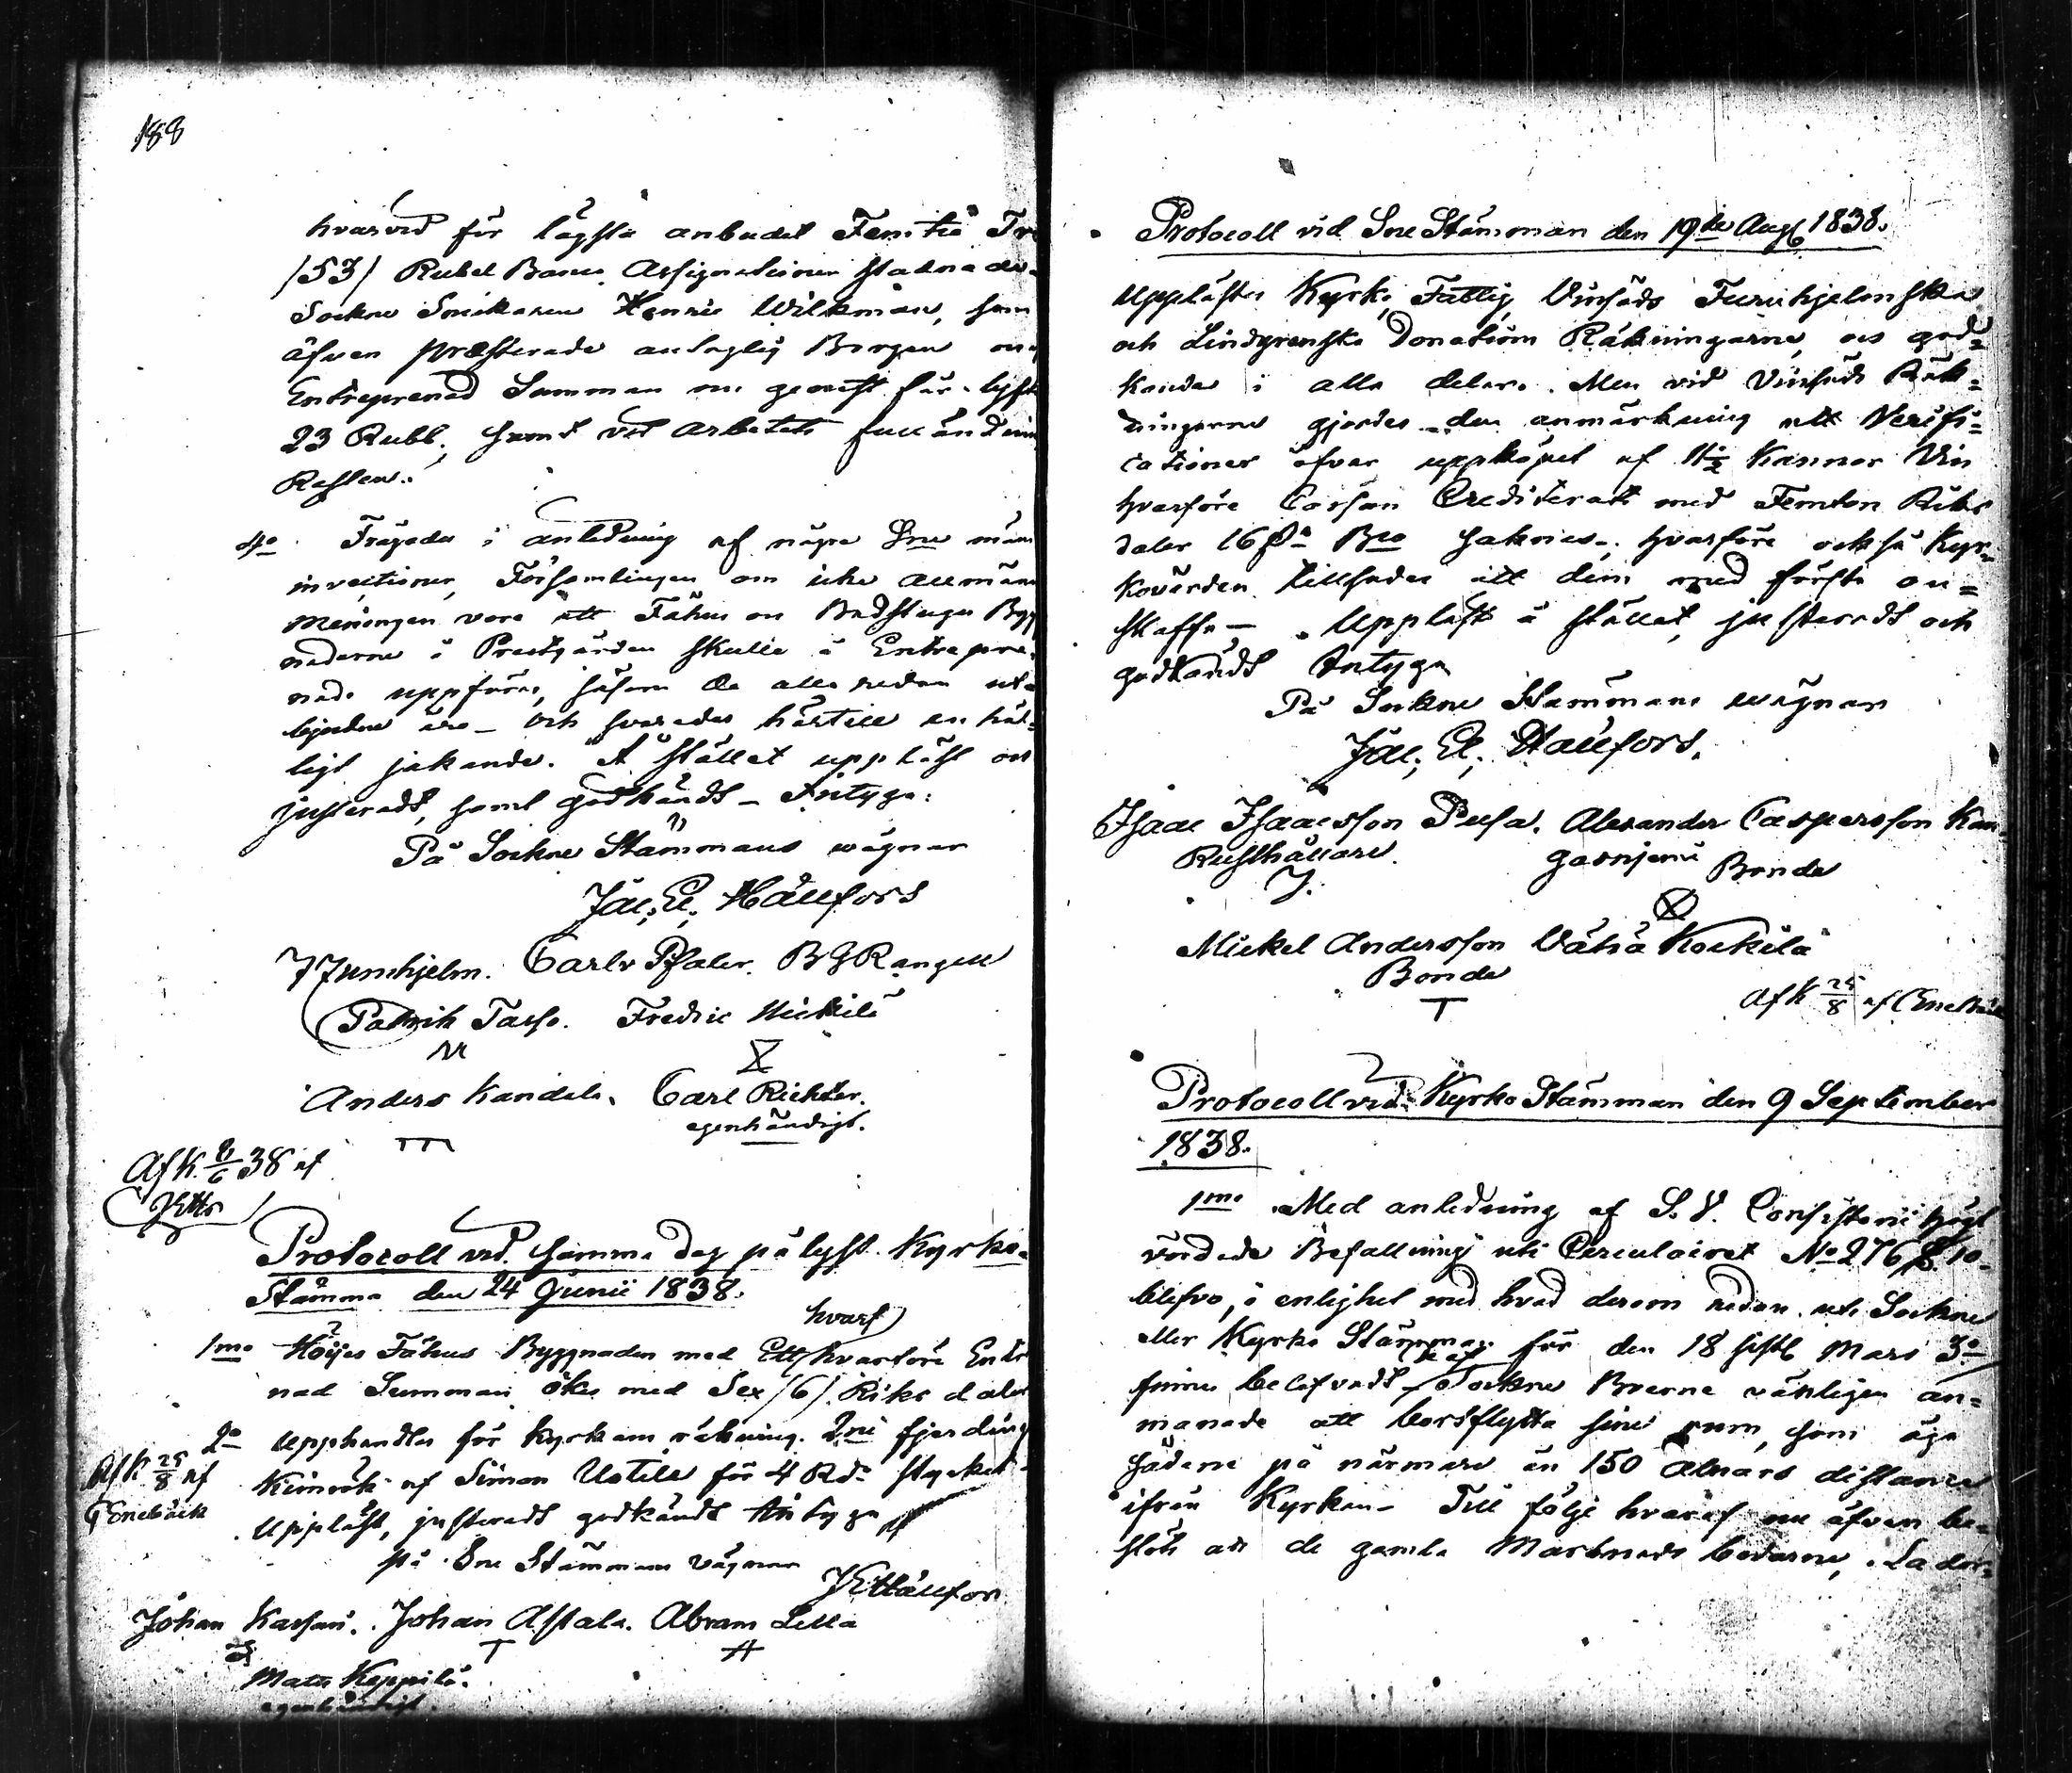 188
hvarvid för lägsta anbudet Femtio Tre
/53/ Rubel Banco Assignationer stadnade
Sockne Snickaren Henric Wilkman, som
äfven præsterade antaglig Borgen och
Entreprenad Summan nu genast får lyfta
23 Rubl, samt vid arbetets fulländning
Resten.
4o Frågades i anledning af några Sne mäns
invectioner, Församlingen om icke allmänna
meningen vore att Fähus och Badstugu Bygg
naderne i Prestgården skulle å Entrepre-
nade uppföras, såsom de alla redan ut-
bjudne äro – och svarades härtill en häl-
ligt jakande. A stället uppläst och
justeradt, samt godkändt – Intyga:
På Sockne Stämmans wägnar
Jac. El. Hällfors
J Furuhjelm. Carl v Pfaler. B G Rangell
Patrik Tasso. Fredric Mickilä
Anders Kandela. Carl Richter.
egenhändigt.
Afk. 8/6 38 af
JEHs
Protocoll vid samma dag pålyst Kyrko-
Stämma den 24 Junii 1838.
hvarf
1mo Höijes Fähus Byggnaden med Ett hvarföre Entre
nad Summan ökes med Sex /6/. Riksdaler
2o Upphandlas för kyrkans räkning 2ne fjerding
Kimrök af Simon Uotila för 4 Rd. stycket.
Afk 25/8 af
GEnebäck
Uppläst, justeradt godkändt Intyga
på Sne Stämmans vägnar
JEHällfors
Johan Kassari. Johan Astala. Abram Lella
Mats Keppilä.
egenhändigt.
Protocoll vid Sne Stämman den 19de Aug 1838.
Upplästes Kyrko, Fattig, Vinsäds Furuhjelmska
och Lindgrenska Donations Räkningarne, och god-
kändes i alla delar. Men vid Vinsäds Räk-
ningarne gjordes den anmärkning att Verifi-
cationer öfver uppköpet af 11½ Kannor Vin
hvarföre Cassan Crediterats med Femton Riks
daler 16 s Bco saknas; hvarföre också Kyr-
kovärden tillsades att dem med första an-
skaffa – Uppläst å stället, justeradt och
godkändt Intyga
På Sockne Stämmans wägnar
Jac. El. Hällfors.
Isaac Isaacsson Pusa. Alexander Caspersson Kan-
Rusthållare. gasniemi Bonde
Mickel Andersson Vähä Kockila
Bonde
Afk 25/8 af GEnebäck
Protocoll vid Kyrko Stämman den 9 September
1838.
1mo Med anledning af S. V. Consistorii högt
vördade Befallning uti Circulairet No 276 §. 10.
blefvo, i enlighet med hvad derom redan uti Sockne
eller Kyrko Stämman för den 18 sistl Mars 3o
finnes belefvadt, Sockne Boerne vänligen an-
manade att bortflytta sine rum, som äga
sådane på närmare än 150 alnars distance
ifrån Kyrkan – Till följe hvaraf nu äfven be-
slöts att de gamla Marknads bodarne, Lador-